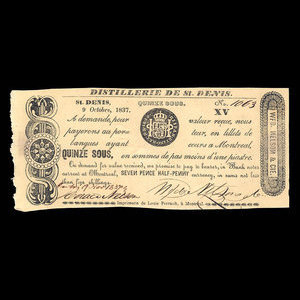 DISTILLERIE DE St. DENIS.
St. DENIS, QUINZE SOUS. No. 1063
9 Octobre, 1837. XV
A demande, pour valeur reçue, nous
payerons au por- teur, en billets de
banques ayant cours à Montreal,
QUINZE SOUS, en sommes de pas moins d'une piastre.
On demand for value received, we promise to pay to bearer, in Bank notes
current at Montreal, SEVEN PENCE HALF-PENNY currency, in sums not less
than five shillings.
Wfred Nelson
Imprimerie de Louis Perrault, à Montreal.
WD. NELSON & CIE.